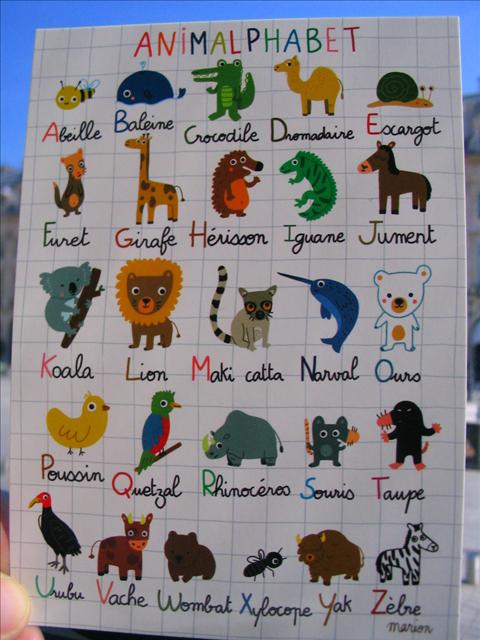 ANIMALPHABET
Abeille Baleine Crocodile Dromadaire Escargot
Furet Girafe Hérisson Iguane Jument
Koala Lion Maki catta Narval Ours
Poussin Quetzal Rhinocéros Souris Taupe
Urubu Vache Wombat Xylocope Yak Zèbre
marion